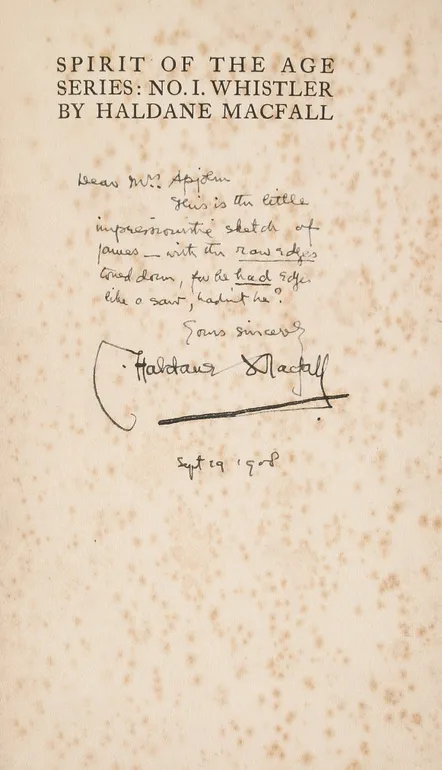 SPIRIT OF THE AGE
SERIES: NO. I. WHISTLER
BY HALDANE MACFALL
Dear Mrs Apjohn
This is the little
impressionistic sketch of
James — with the raw edges
toned down, for he had edges
like a saw, hadn't he?
Yours sincerely
Haldane Macfall
Sept 19 1908